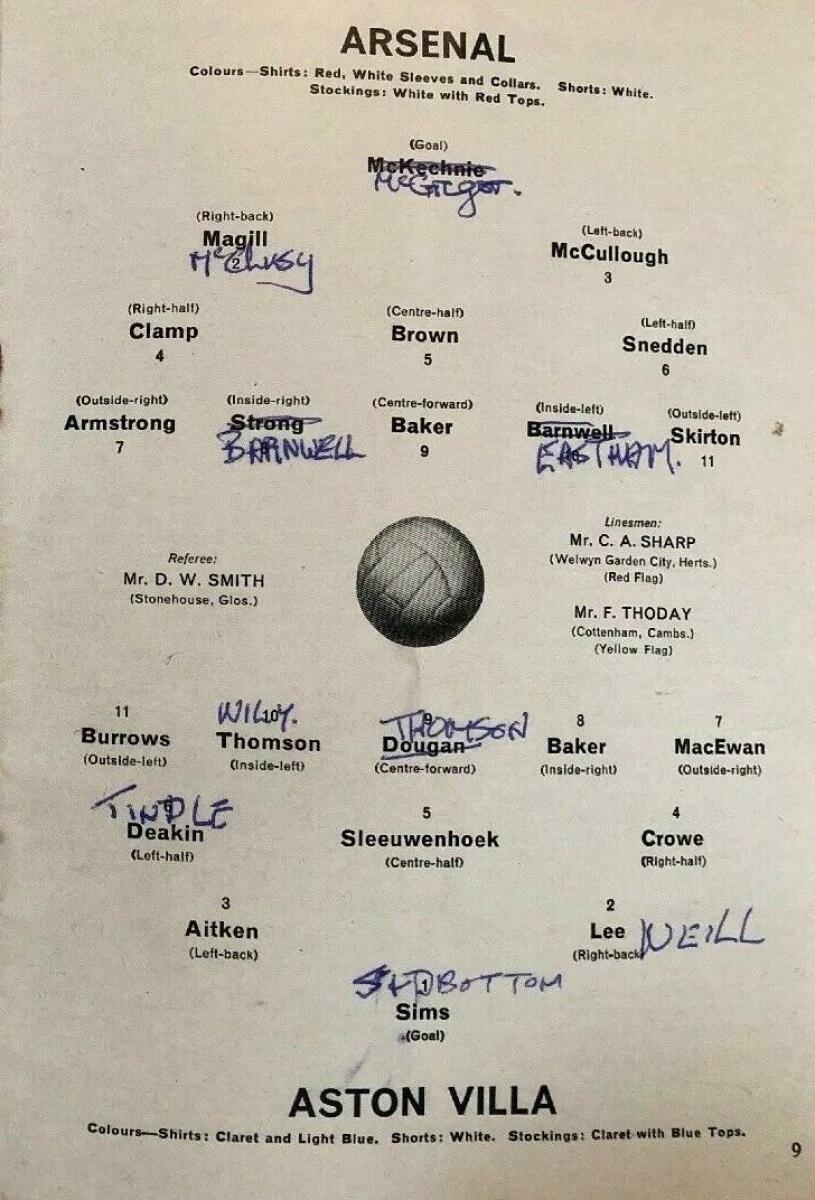 ARSENAL
Colours—Shirts: Red, White Sleeves and Collars. Shorts: White.
Stockings: White with Red Tops.
(Goal)
McKechnie
(Right-back)
Magill
2
(Left-back)
McCullough
3
(Right-half)
Clamp
4
(Centre-half)
Brown
5
(Left-half)
Snedden
6
(Outside-right)
Armstrong
7
(Inside-right)
Strong
BARNWELL
(Centre-forward)
Baker
9
(Inside-left)
Barnwell
EASTHAM.
(Outside-left)
Skirton
11
Referee:
Mr. D. W. SMITH
(Stonehouse, Glos.)
Linesmen:
Mr. C. A. SHARP
(Welwyn Garden City, Herts.)
(Red Flag)
Mr. F. THODAY
(Cottenham, Cambs.)
(Yellow Flag)
11
Burrows
(Outside-left)
10
Thomson
(Inside-left)
THOMSON
9
Dougan
(Centre-forward)
8
Baker
(Inside-right)
7
MacEwan
(Outside-right)
TINDLE
6
Deakin
(Left-half)
5
Sleeuwenhoek
(Centre-half)
4
Crowe
(Right-half)
3
Aitken
(Left-back)
2
Lee NEILL
(Right-back)
1
Sims
(Goal)
ASTON VILLA
Colours—Shirts: Claret and Light Blue. Shorts: White. Stockings: Claret with Blue Tops.
9